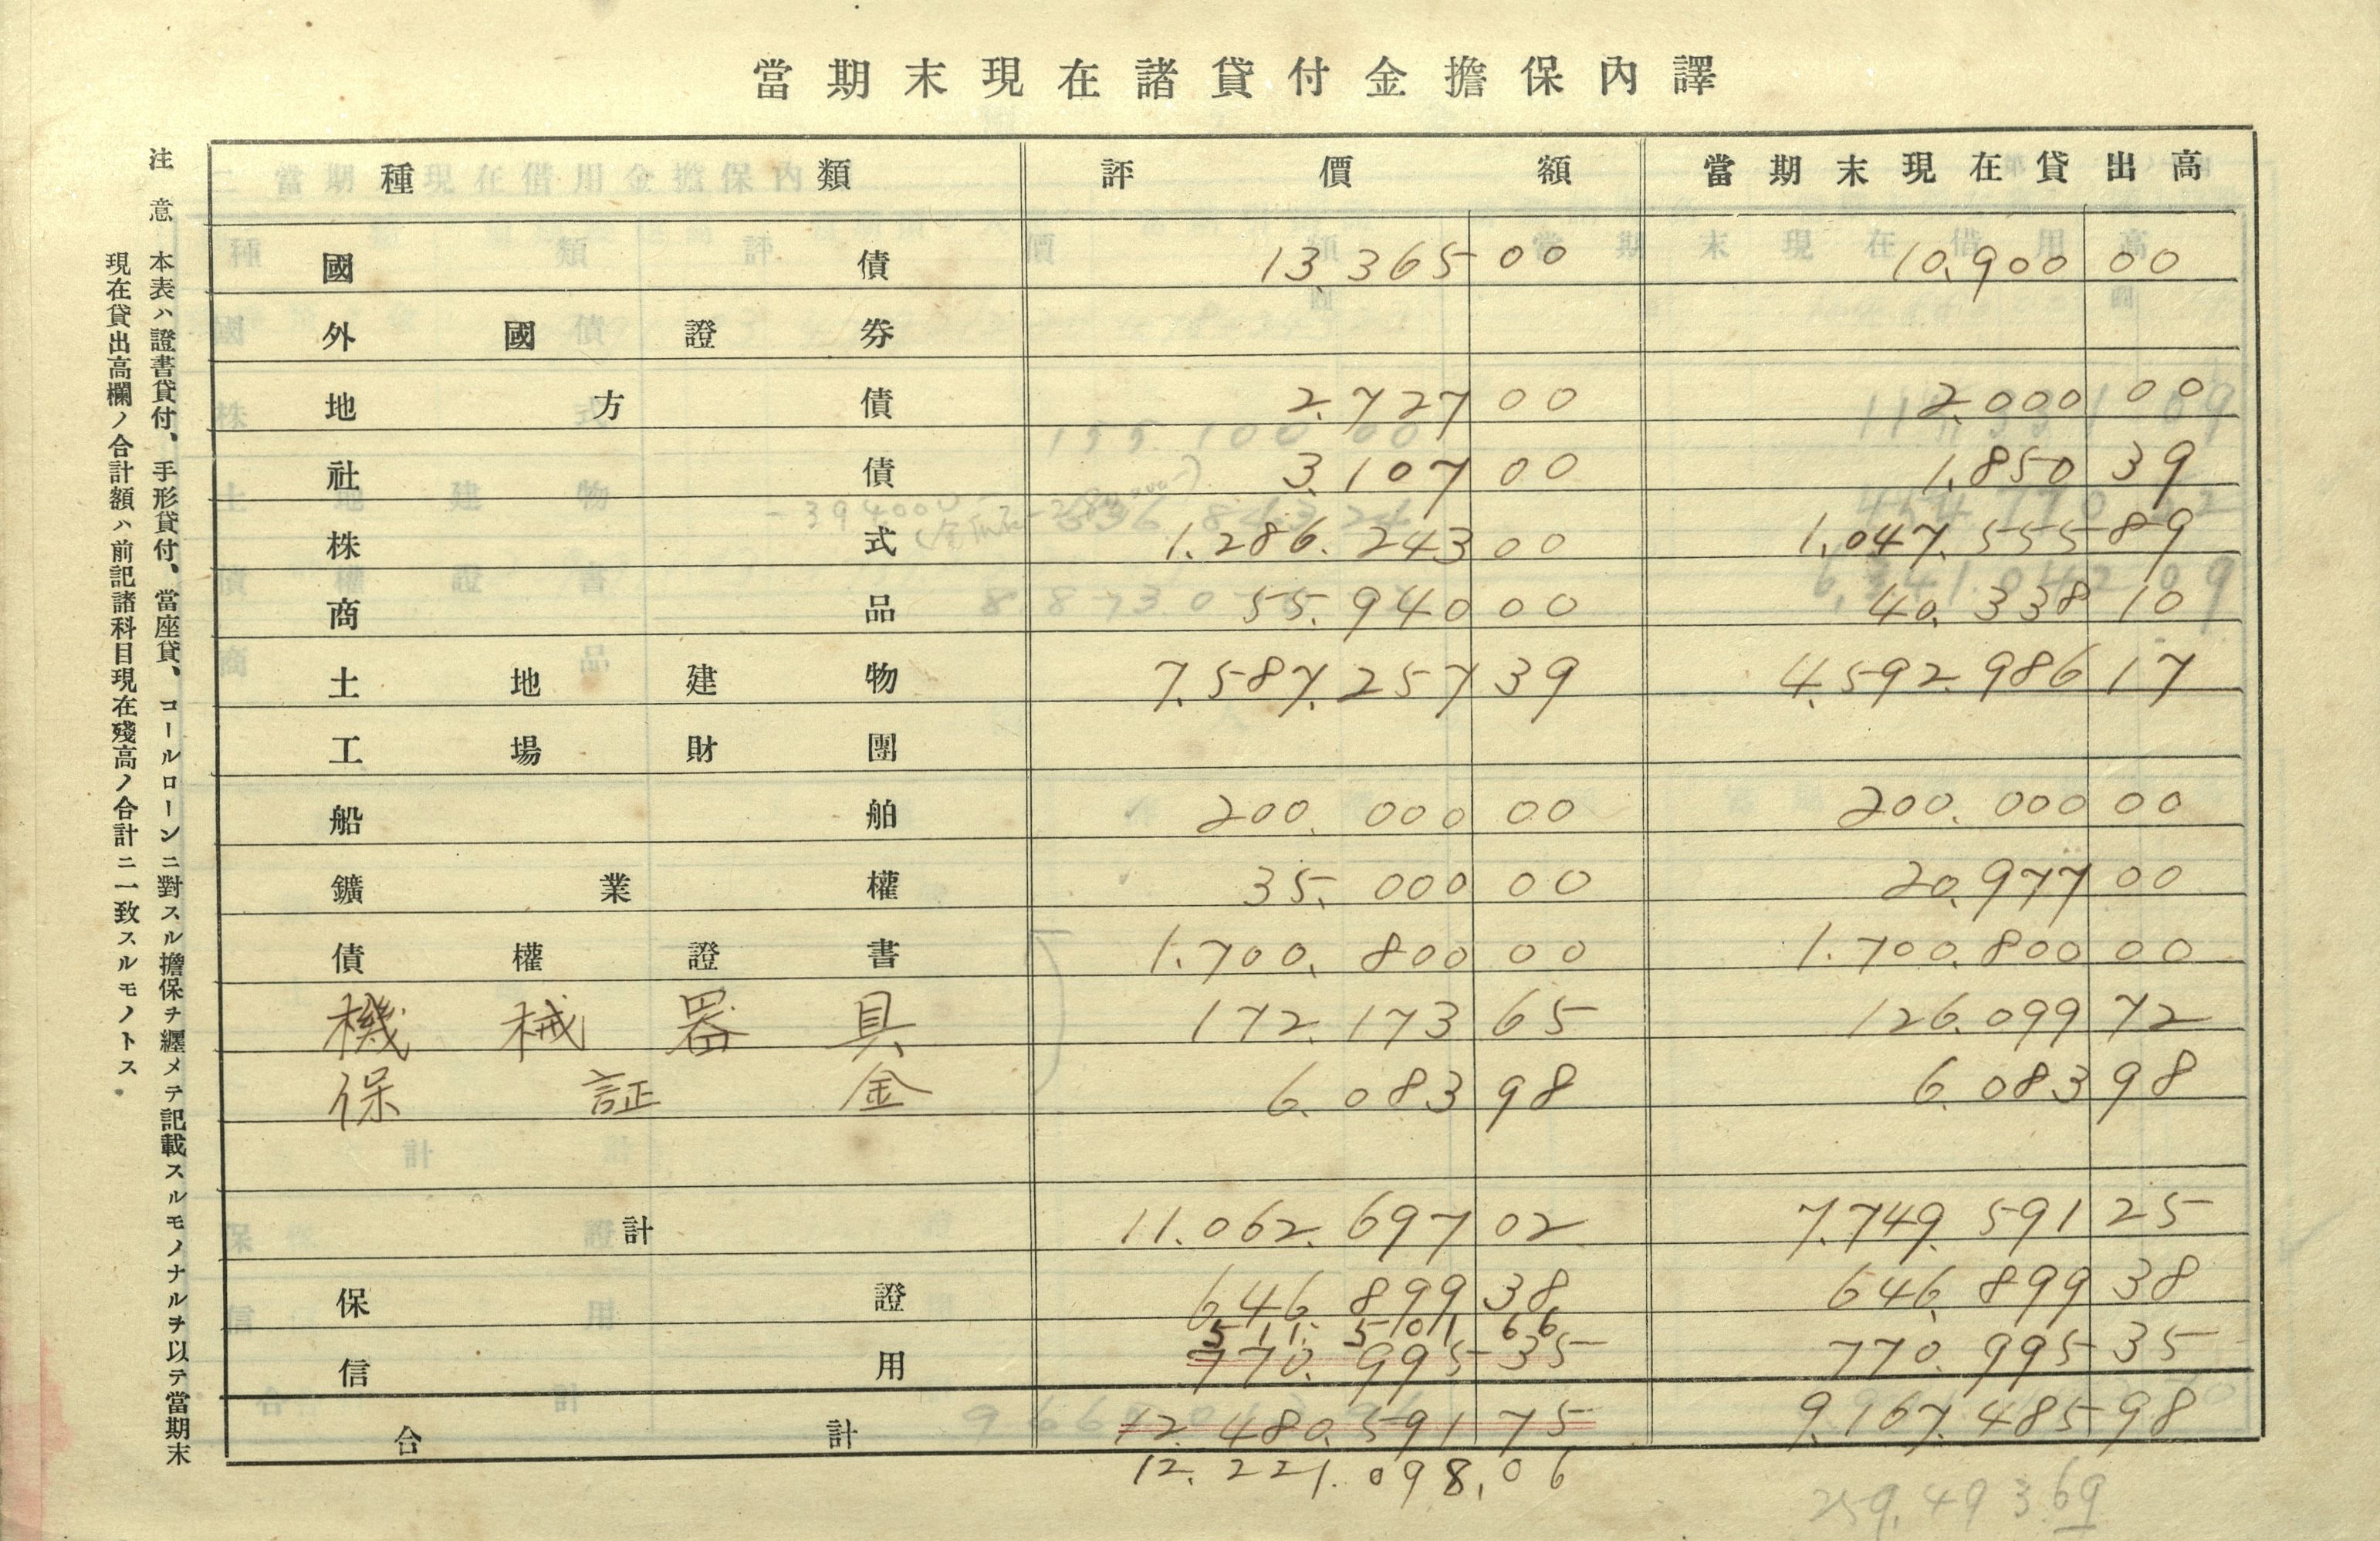 當期末現在諸貸付金擔保內譯
種類 評價額 當期末現在貸出高
國債 13,365 00 10,900 00
外國證券
地方債 2,727 00 2,000 00
社債 3,107 00 1,850 39
株式 1,286,243 00 1,047,555 89
商品 55,940 00 40,338 10
土地建物 7,587,257 39 4,592,986 17
工場財團
船舶 200,000 00 200,000 00
鑛業權 35,000 00 20,977 00
債權證書 1,700,800 00 1,700,800 00
機械器具 172,173 65 126,099 72
保証金 6,083 98 6,083 98
計 11,062,697 02 7,749,591 25
保證 646,899 38 646,899 38
511,501 66
信用 770,995 35 770,995 35
合計 12,480,591 75 9,167,485 98
12,221,098,06
259,493 69
注意 本表ハ證書貸付、手形貸付、當座貸、コールローンニ對スル擔保ヲ纒メテ記載スルモノナルヲ以テ當期末
現在貸出高欄ノ合計額ハ前記諸科目現在殘高ノ合計ニ一致スルモノトス